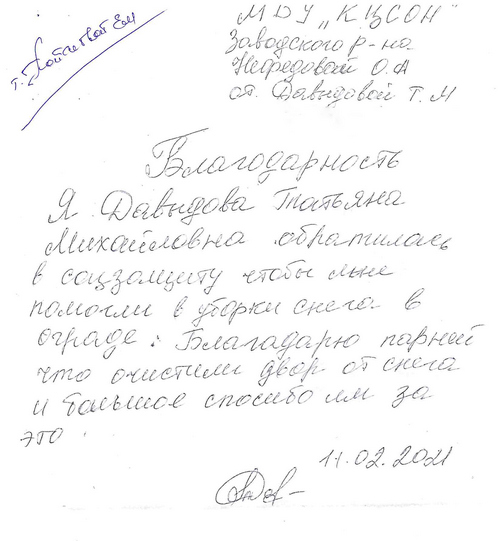 МДУ „КЦСОН"
Заводского р-на
Нефедовой О.А
от. Давыдовой Т. М
Благодарность
Я Давыдова Татьяна
Михайловна обратилась
в соцзащиту чтобы мне
помогли в уборки снега в
ограде. Благадарю парней
что очистили двор от снега
и большое спосибо им за
это.
11.02.2021